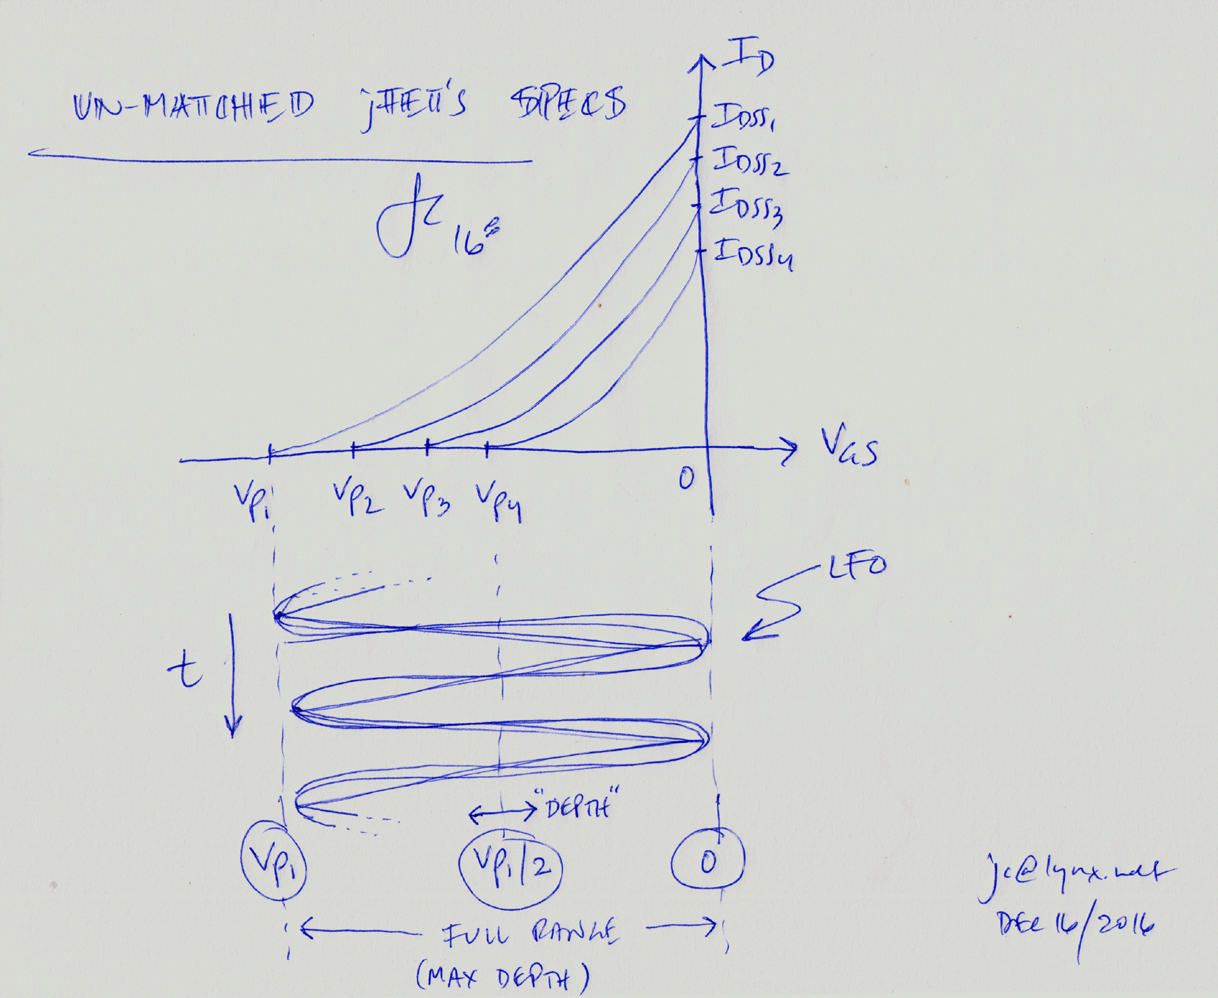 UN-MATCHED jFET'S SPECS
ID
IDSS1
IDSS2
IDSS3
IDSS4
VGS
0
Vp1
Vp2
Vp3
Vp4
LFO
t
"DEPTH"
Vp1
Vp1/2
0
FULL RANGE
(MAX DEPTH)
jc@lynx.net
DEC 16/2016